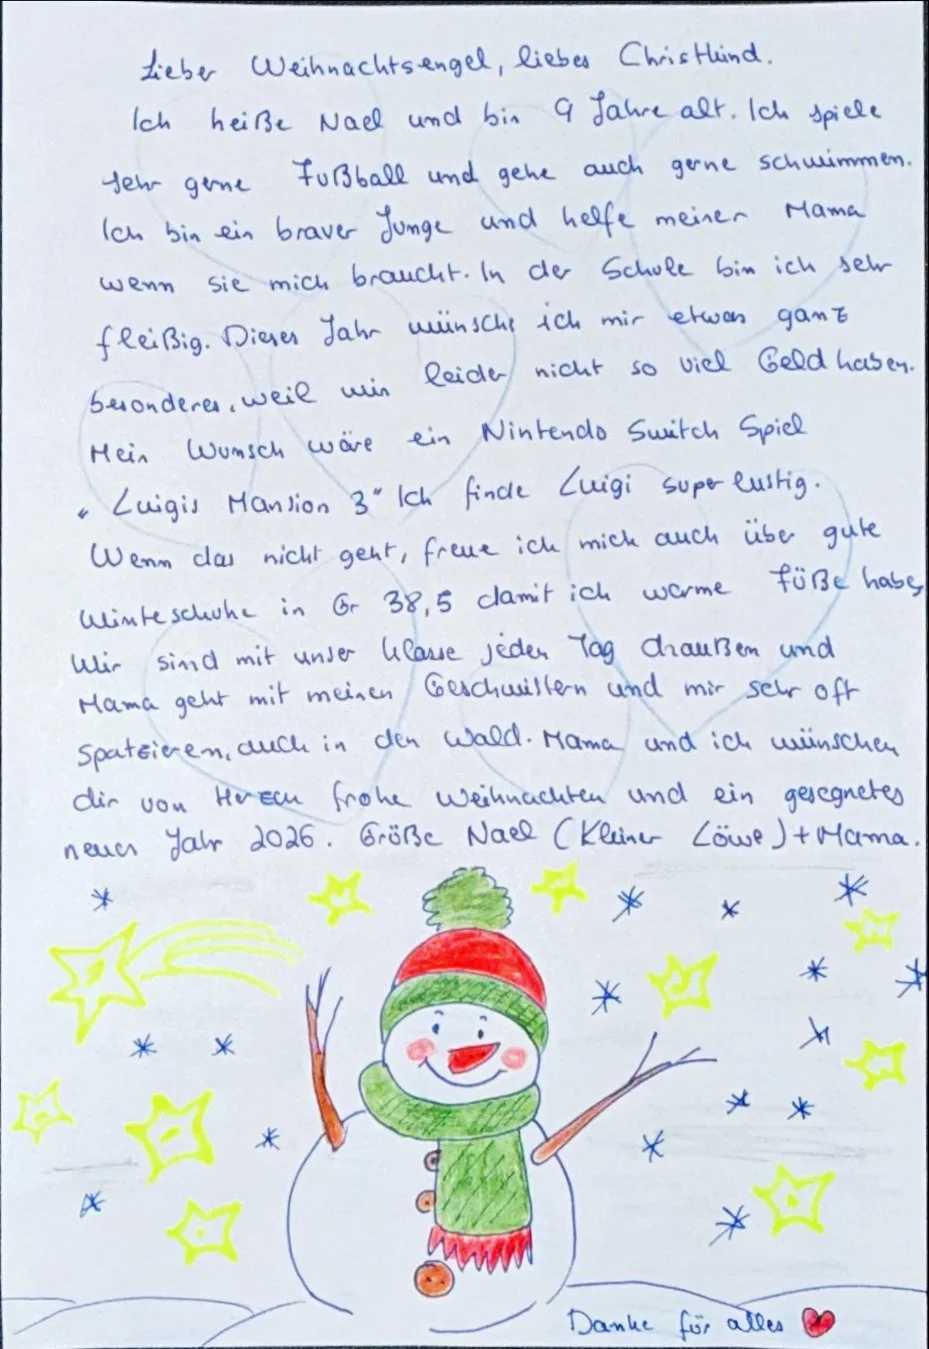 Lieber Weihnachtsengel, liebes Christkind.
Ich heiße Nael und bin 9 Jahre alt. Ich spiele
sehr gerne Fußball und gehe auch gerne schwimmen.
Ich bin ein braver Junge und helfe meiner Mama
wenn sie mich braucht. In der Schule bin ich sehr
fleißig. Dieses Jahr wünsche ich mir etwas ganz
besonderes, weil wir leider nicht so viel Geld haben.
Mein Wunsch wäre ein Nintendo Switch Spiel
"Luigis Mansion 3" Ich finde Luigi super lustig.
Wenn das nicht geht, freue ich mich auch über gute
Winteschuhe in Gr 38,5 damit ich warme Füße habe,
Wir sind mit unser Klasse jeden Tag draußen und
Mama geht mit meinen Geschwistern und mir sehr oft
spatzieren, auch in den Wald. Mama und ich wünschen
dir von Herzen frohe Weihnachten und ein gesegnetes
neues Jahr 2026. Größe Nael (Kleiner Löwe) + Mama.
Danke für alles